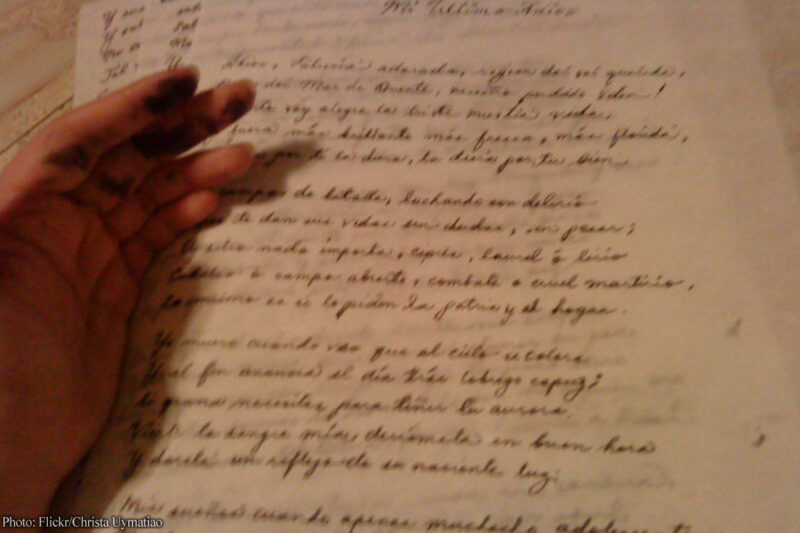 Mi Ultimo Adios
Adios, Patria adorada, region del sol querida,
del Mar de Oriente, nuestro perdido Eden!
voy alegre la triste mustia vida,
fuera más brillante más fresca, más florida,
por ti la diera, la diera por tu bien
campos de batalla, luchando con delirio
te dan sus vidas sin dudas, sin pesar;
El sitio nada importa, ciprés, laurel ó lirio
Cadalso o campo abierto, combate o cruel martirio,
Lo mismo es si lo piden la patria y el hogar.
Yo muero cuando veo que al cielo se colora
Y al fin anuncia el día trás lobrego capuz;
grana necesitas para teñir tu aurora,
Vierte la sangre mía, derrámela en buen hora
Y dorela un reflejo de su naciente luz.
Mis sueños cuando apenas muchacho
Photo: Flickr/Christa Uymatiao